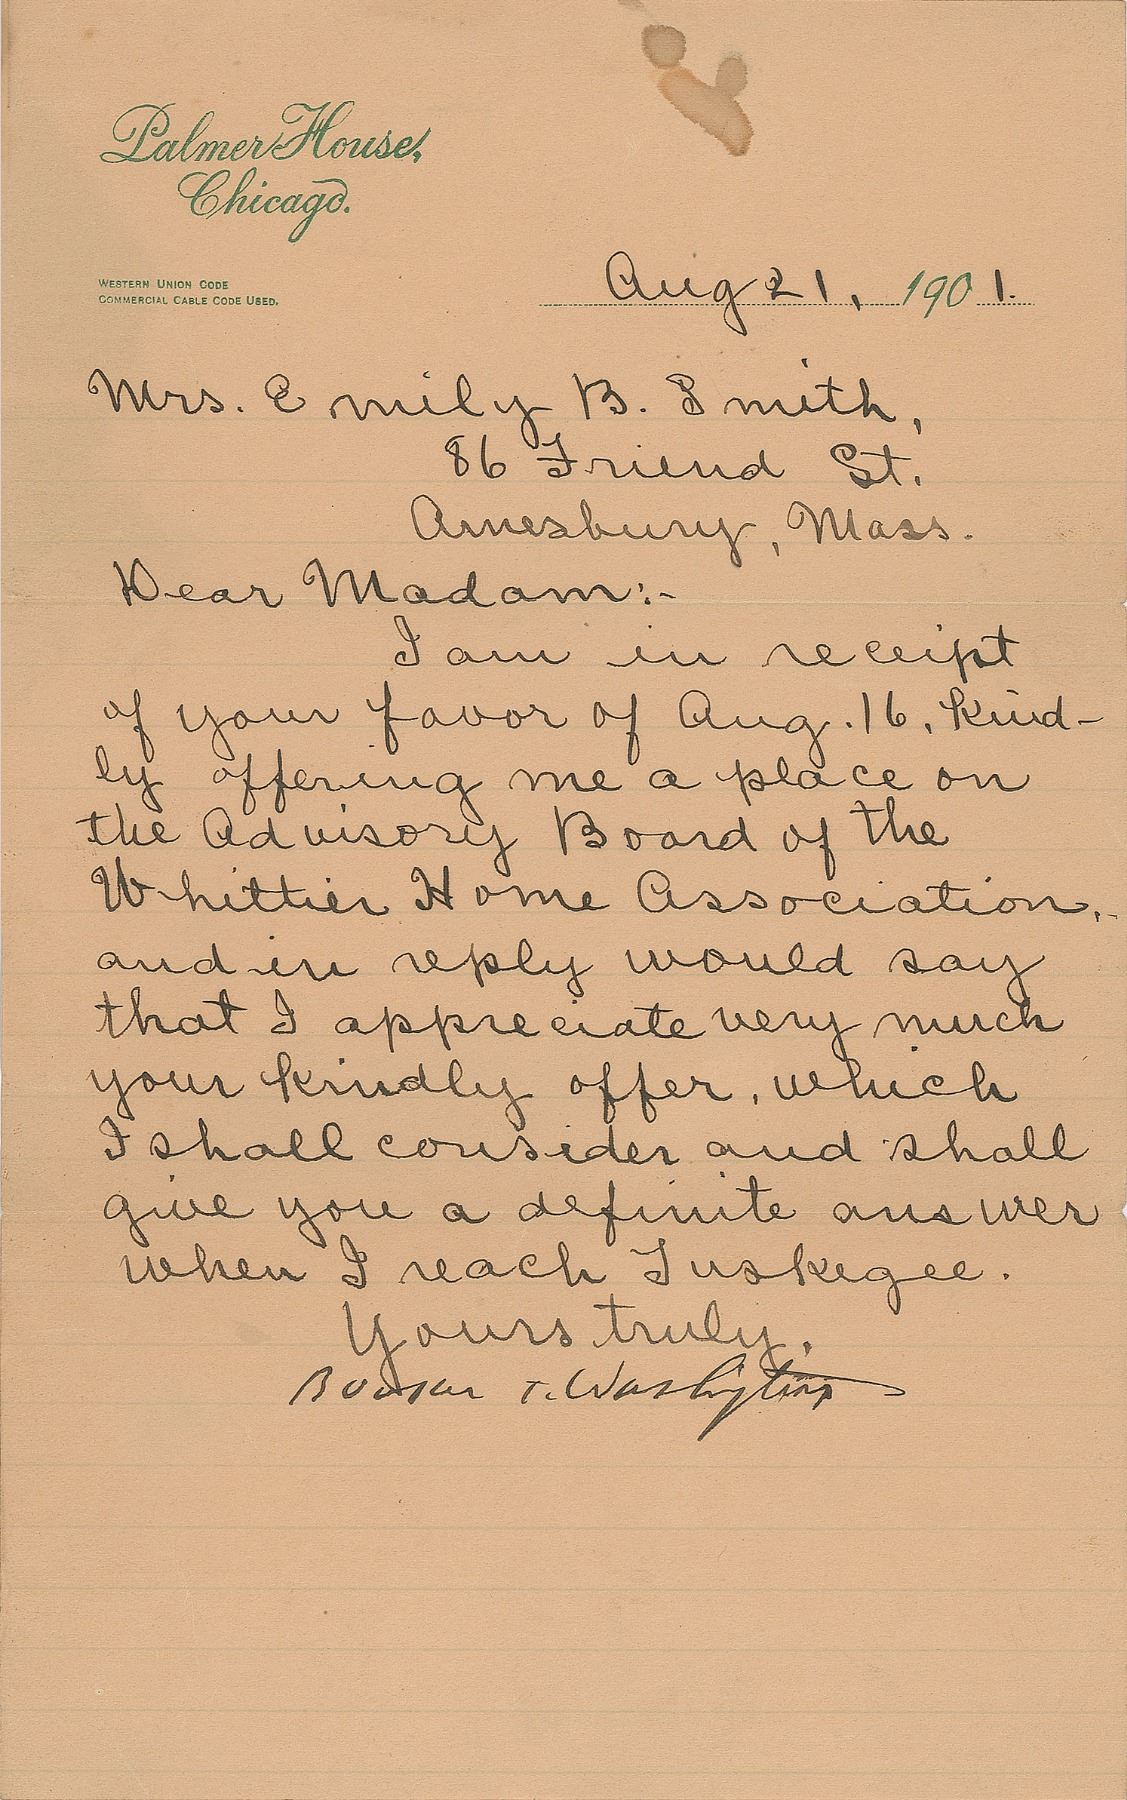 Palmer House,
Chicago.
WESTERN UNION CODE
COMMERCIAL CABLE CODE USED.
Aug 21, 1901.
Mrs. Emily B. Smith,
86 Friend St.
Amesbury, Mass.
Dear Madam:-
I am in receipt
of your favor of Aug. 16, kind-
ly offering me a place on
the Advisory Board of the
Whittier Home Association,
and in reply would say
that I appreciate very much
your kindly offer, which
I shall consider and shall
give you a definite answer
when I reach Tuskegee.
Yours truly,
Booker T. Washington